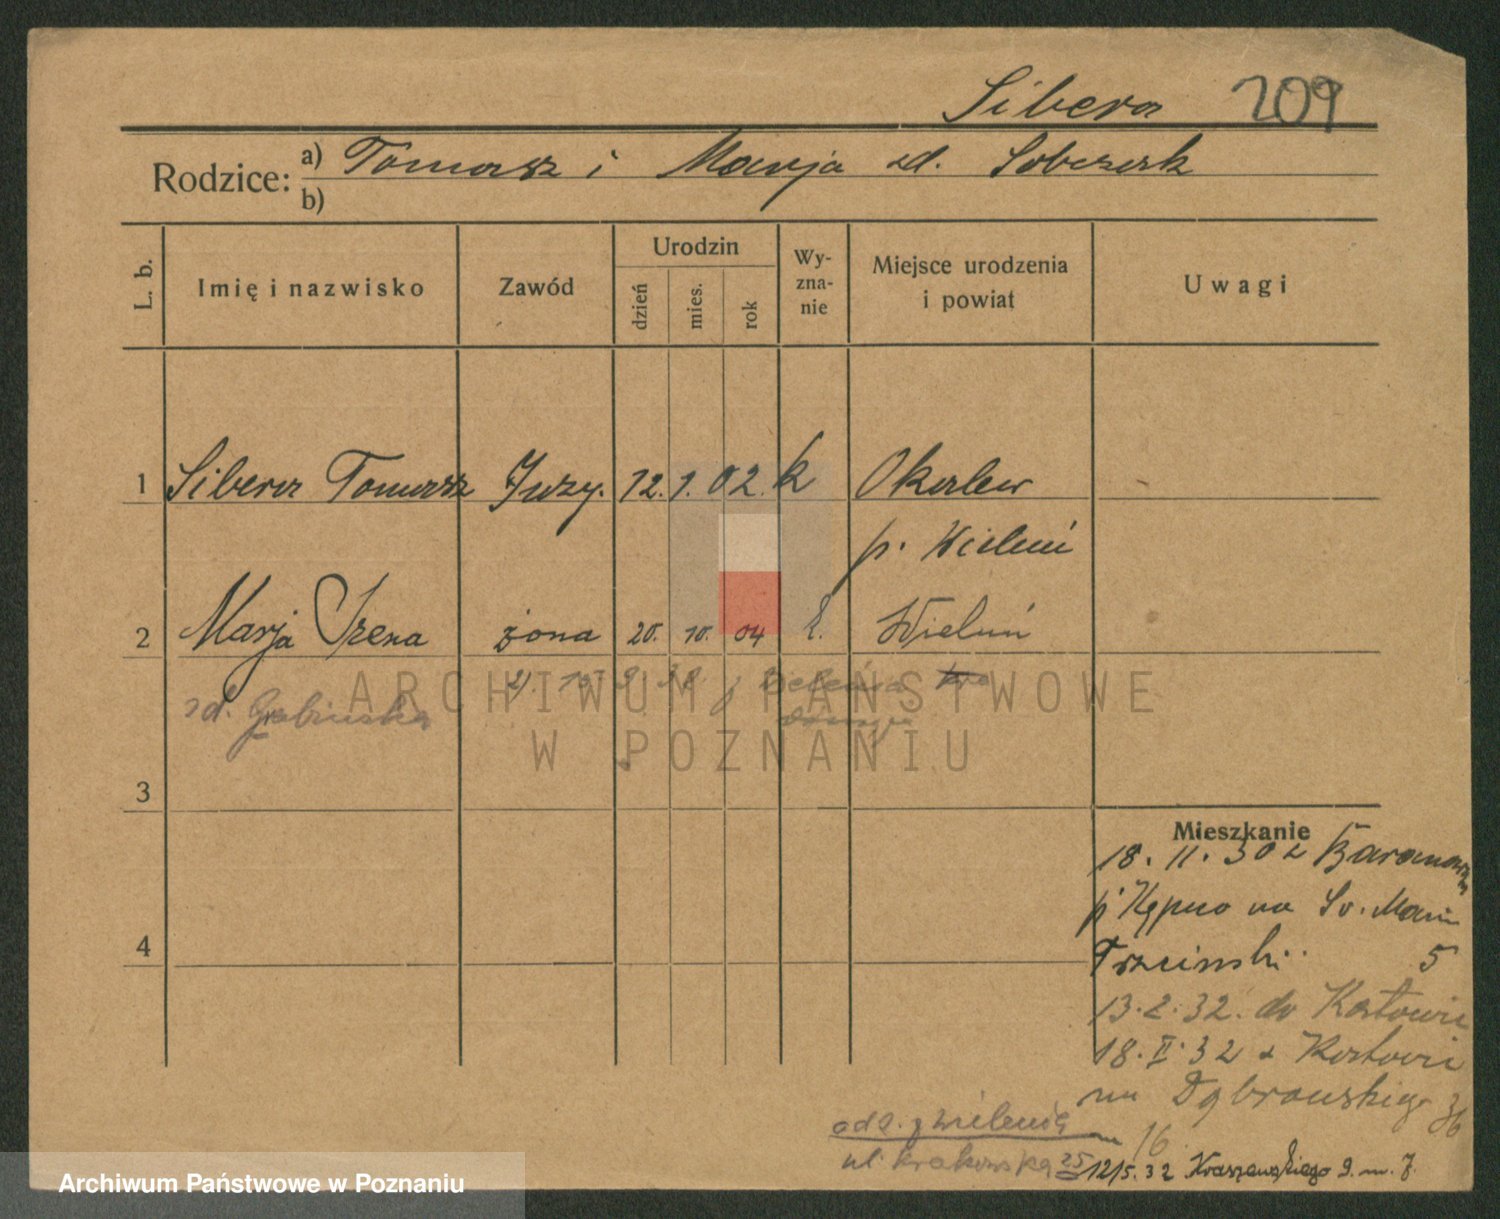 Sibera 209
Rodzice: a) Tomasz i Marja zd. Sobczak
b)
L. b. Imię i nazwisko Zawód Urodzin dzień mies. rok Wyznanie Miejsce urodzenia i powiat Uwagi
1 Sibera Tomasz Fryzj. 12. 1. 02. k Okalew
p. Wieluń
2 Marja Irena żona 20. 10. 04 k. Wieluń
zd. Grabińska
ARCHIWUM PAŃSTWOWE
W POZNANIU
3
Mieszkanie
18. 11. 30 z Baranowa
p. Kępno na Św. Marcin
4
Trzciński 5
13. 2. 32. do Katowic
18. II. 32 z Katowic
na Dąbrowskiego 36
odl. z Wielunia 16
ul. Krakowska 25
12/5. 32 Kraszewskiego 9. m. 7.
Archiwum Państwowe w Poznaniu